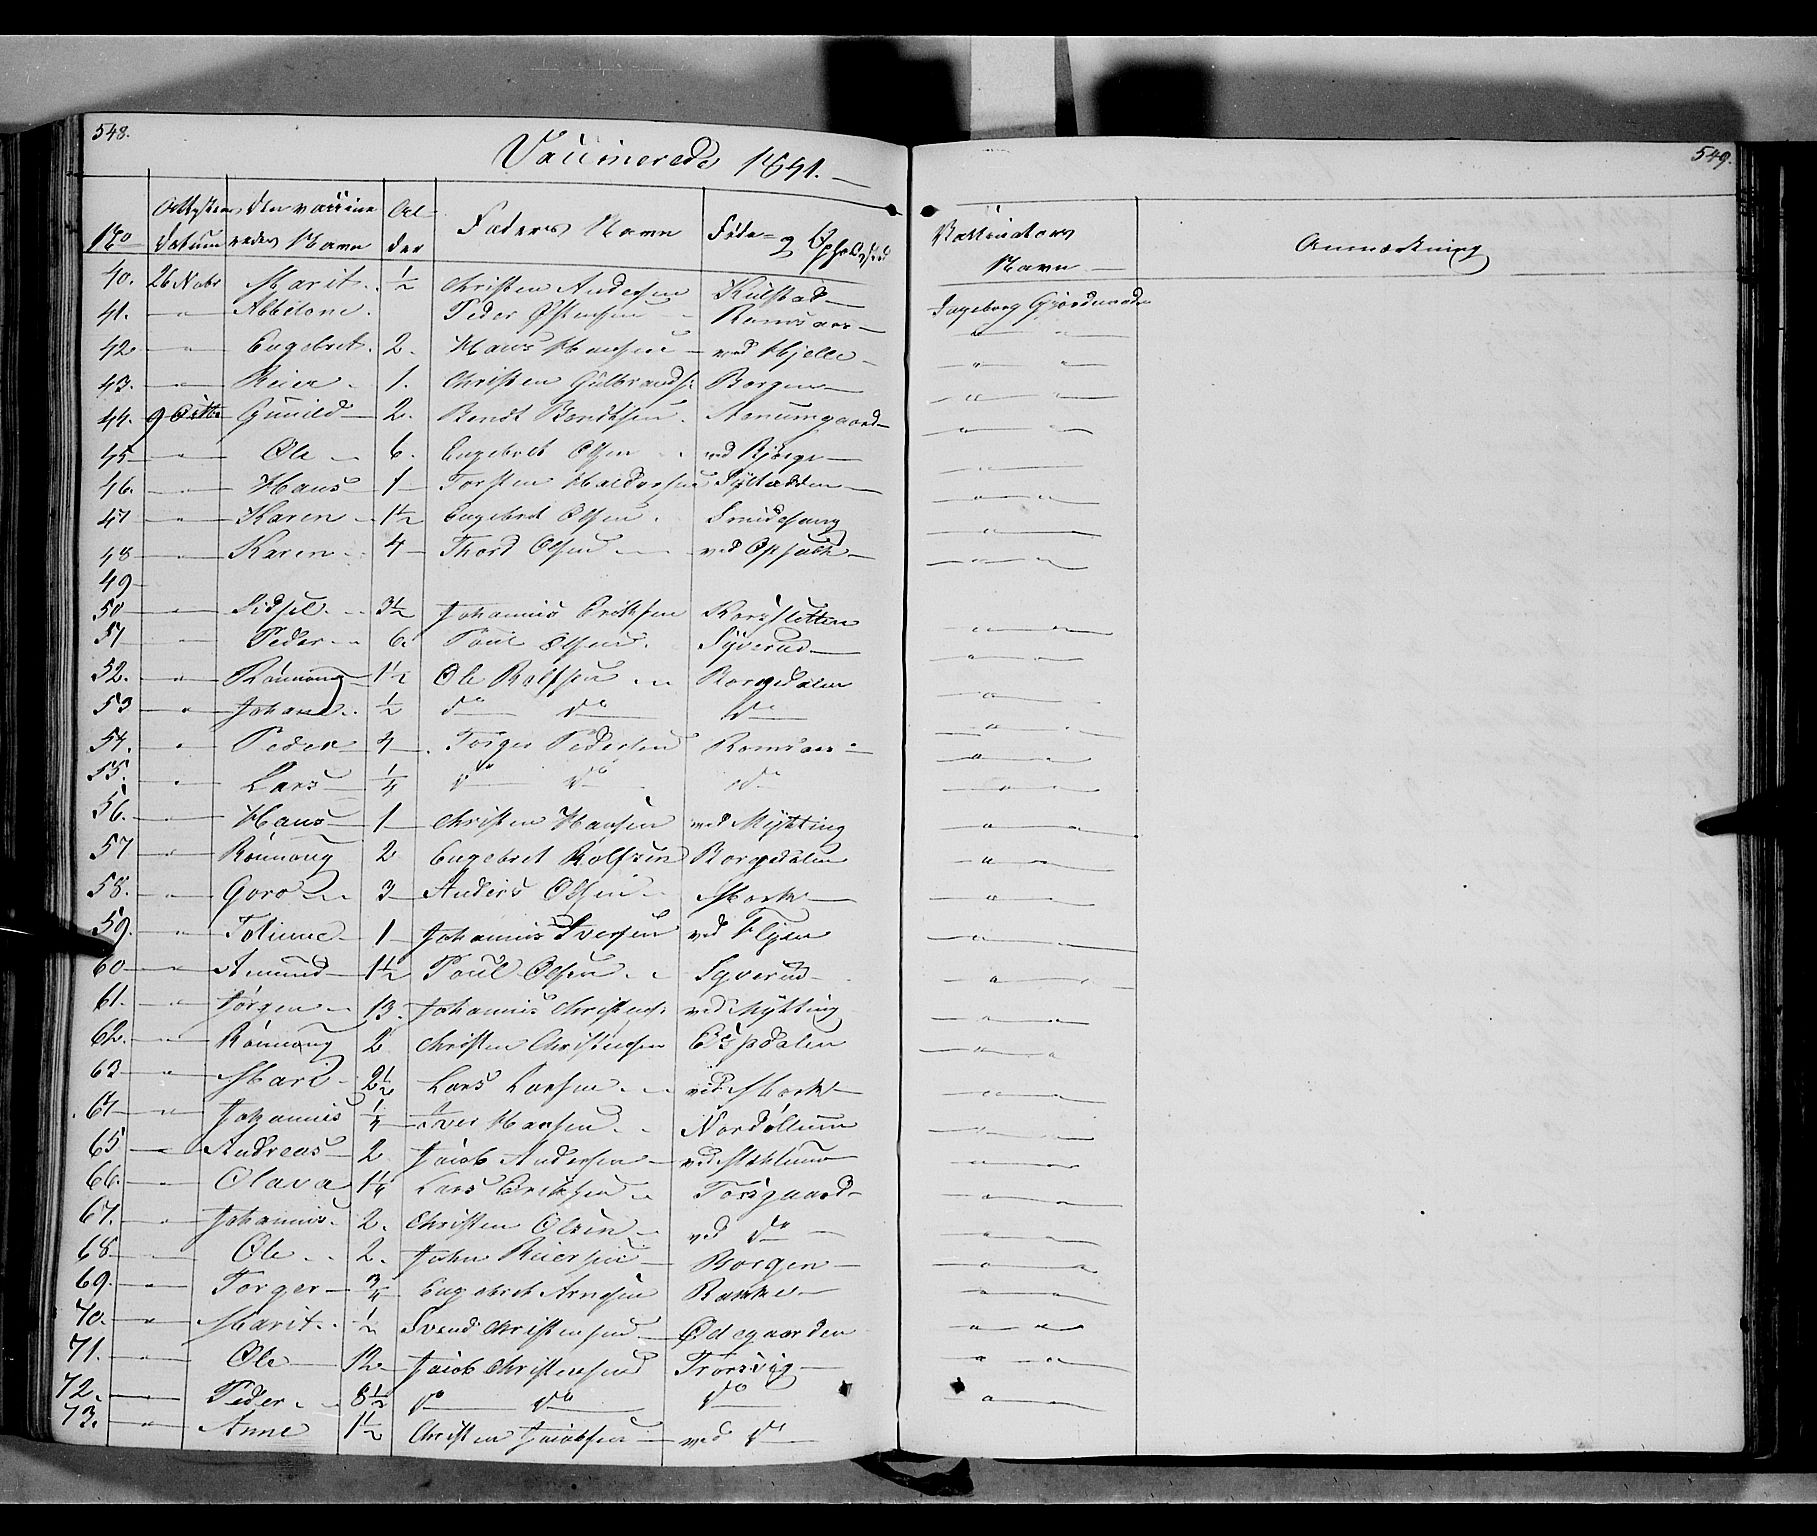 548.
Vaccinerede 1841.
No Attestens Datum Den vaccineredes Navn Alder Faders Navn Føde- og Opholdssted
40. 26 Nobr Marit. ½ Christen Andersen Kulstad
41. " Abbelone. Peder Østensen Romsaas
42. " Engebret. 2. Hans Hansen ved Hjelle
43. " Reier 1. Christen Gulbrands: Borgen
44. 9 Octbr Gunild 2. Bendt Bendtsen. Aanumgaard
45 " Ole 6. Engebret Olsen ved Bjørge
46. " Hans 1 Torsten Haldorsen
47 " Karen 1½ Engebret Olsen.
48 " Karen 4 Thord Olsen ved Opsal
49
50 " Sidsel 3½ Johannes Eriksen
51 " Peder 6. Poul Olsen. Syverud
52. " Rønnaug 1½ Ole Rolfsen Borgedalen
53 " Johans ½ do do do
54. " Peder 4 Torger Pedersen Romsaas
55. " Lars ¼ do do do
56. " Hans 1 Christen Hansen ved Mytting
57 " Rønnaug 2 Engebret Rolfsen Borgedalen
58. " Goro 3 Anders Olsen Mork
59. " 1 Johannes Iversen ved Flyen
60 " Amund 1½ Poul Olsen Syverud
61. " Jørgen 13. Johannes Christens: ved Mytting
62. " Rønnaug 2 Christen Christensen Espedalen
63 " Mari 2½ Lars Larsen ved Mork
64 " Johannes ¼ Iver Hansen
65 " Andreas 2 Jacob Andersen
66. " Olava 1¼ Lars Eriksen Forsgaard
67. " Johannes 2. Christen Olsen ved do
68 " Ole 2. John Reiersen Borgen
69. " Torger ¾ Engebret Arnesen Bakke
70. " Marit ½ Svend Christensen Ødegaarden
71. " Ole 12 Jacob Christensen Trosvig
72. " Peder 8½ do do do
73. " Anne 1½ Christen Jacobsen ved do
549.
Vaccinators Navn Anmærkning
Ingeborg